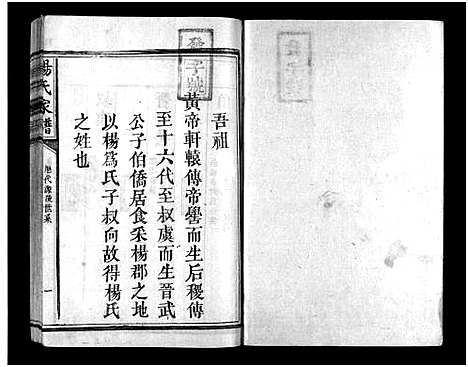 吾祖
黃帝軒轅傳帝嚳而生后稷傳
至十六代至叔虞而生晉武
公子伯僑居食采楊郡之地
以楊爲氏子叔向故得楊氏
之姓也
楊氏家譜
歷代源流世系
一